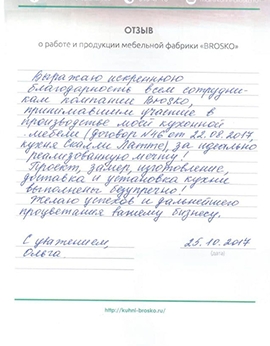 ОТЗЫВ
о работе и продукции мебельной фабрики «BROSKO»
Выражаю искреннюю
благодарность всем сотрудни-
кам компании Brosko,
принимавшим участие в
производстве моей кухонной
мебели (договор №46 от 22.08.2017
кухня Скалли Латте), за идеально
реализованную мечту!
Проект, замер, изготовление,
доставка и установка кухни
выполнены безупречно!
Желаю успехов и дальнейшего
процветания вашему бизнесу.
С уважением, 25.10.2017
Ольга. (дата)
http://kuhni-brosko.ru/